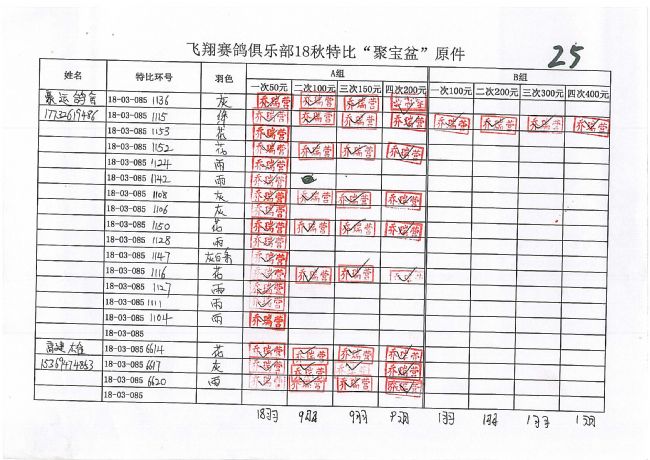 飞翔赛鸽俱乐部18秋特比“聚宝盆”原件 25
姓名 特比环号 羽色 A组 B组
一次50元 二次100元 三次150元 四次200元 一次100元 二次200元 三次300元 四次400元
18-03-085 1136 灰 乔瑞营 乔瑞营 乔瑞营
17732619486 18-03-085 1115 绛 乔瑞营 乔瑞营 乔瑞营 乔瑞营 乔瑞营 乔瑞营 乔瑞营 乔瑞营
18-03-085 1153 花 乔瑞营
18-03-085 1152 花 乔瑞营 乔瑞营 乔瑞营 乔瑞营
18-03-085 1124 雨 乔瑞营
18-03-085 1142 雨 乔瑞营
18-03-085 1108 灰 乔瑞营 乔瑞营 乔瑞营 乔瑞营
18-03-085 1106 灰 乔瑞营
18-03-085 1150 花 乔瑞营 乔瑞营 乔瑞营 乔瑞营
18-03-085 1128 雨 乔瑞营
18-03-085 1147 乔瑞营
18-03-085 1116 花 乔瑞营 乔瑞营 乔瑞营 乔瑞营
18-03-085 1127 雨 乔瑞营
18-03-085 1111 雨 乔瑞营
18-03-085 1104 雨 乔瑞营
18-03-085
18-03-085 6614 花 乔瑞营 乔瑞营 乔瑞营 乔瑞营
15369474863 18-03-085 6617 灰 乔瑞营 乔瑞营 乔瑞营 乔瑞营
18-03-085 6620 雨 乔瑞营 乔瑞营 乔瑞营 乔瑞营
18-03-085